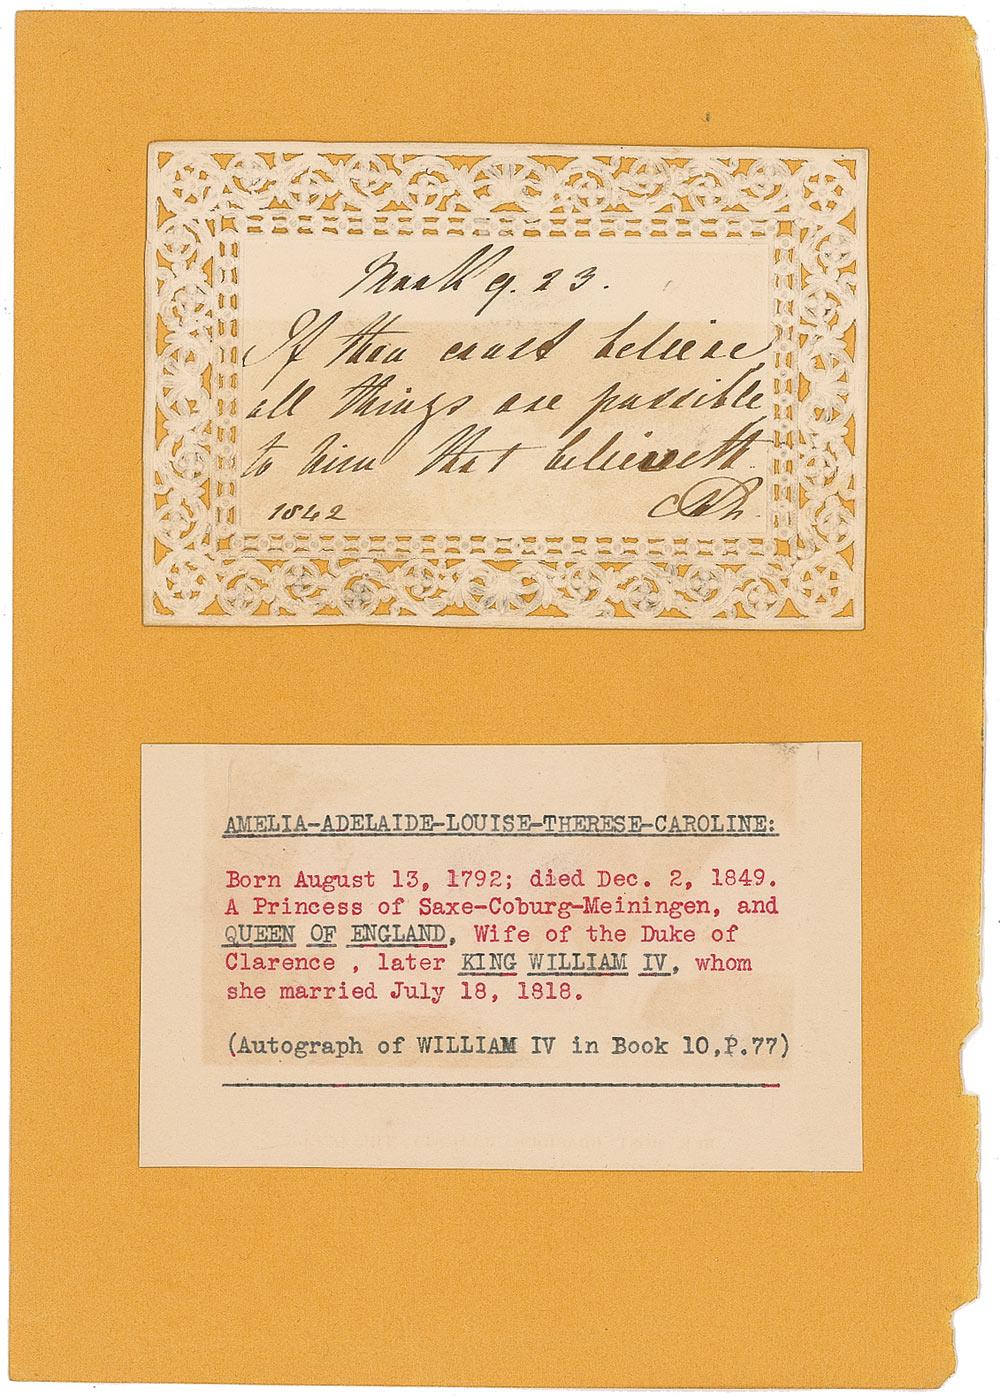 Mark 9. 23.
If thou canst believe
all things are possible
to him that believeth.
1842
AMELIA-ADELAIDE-LOUISE-THERESE-CAROLINE:
Born August 13, 1792; died Dec. 2, 1849.
A Princess of Saxe-Coburg-Meiningen, and
QUEEN OF ENGLAND, Wife of the Duke of
Clarence , later KING WILLIAM IV, whom
she married July 18, 1818.
(Autograph of WILLIAM IV in Book 10,P.77)